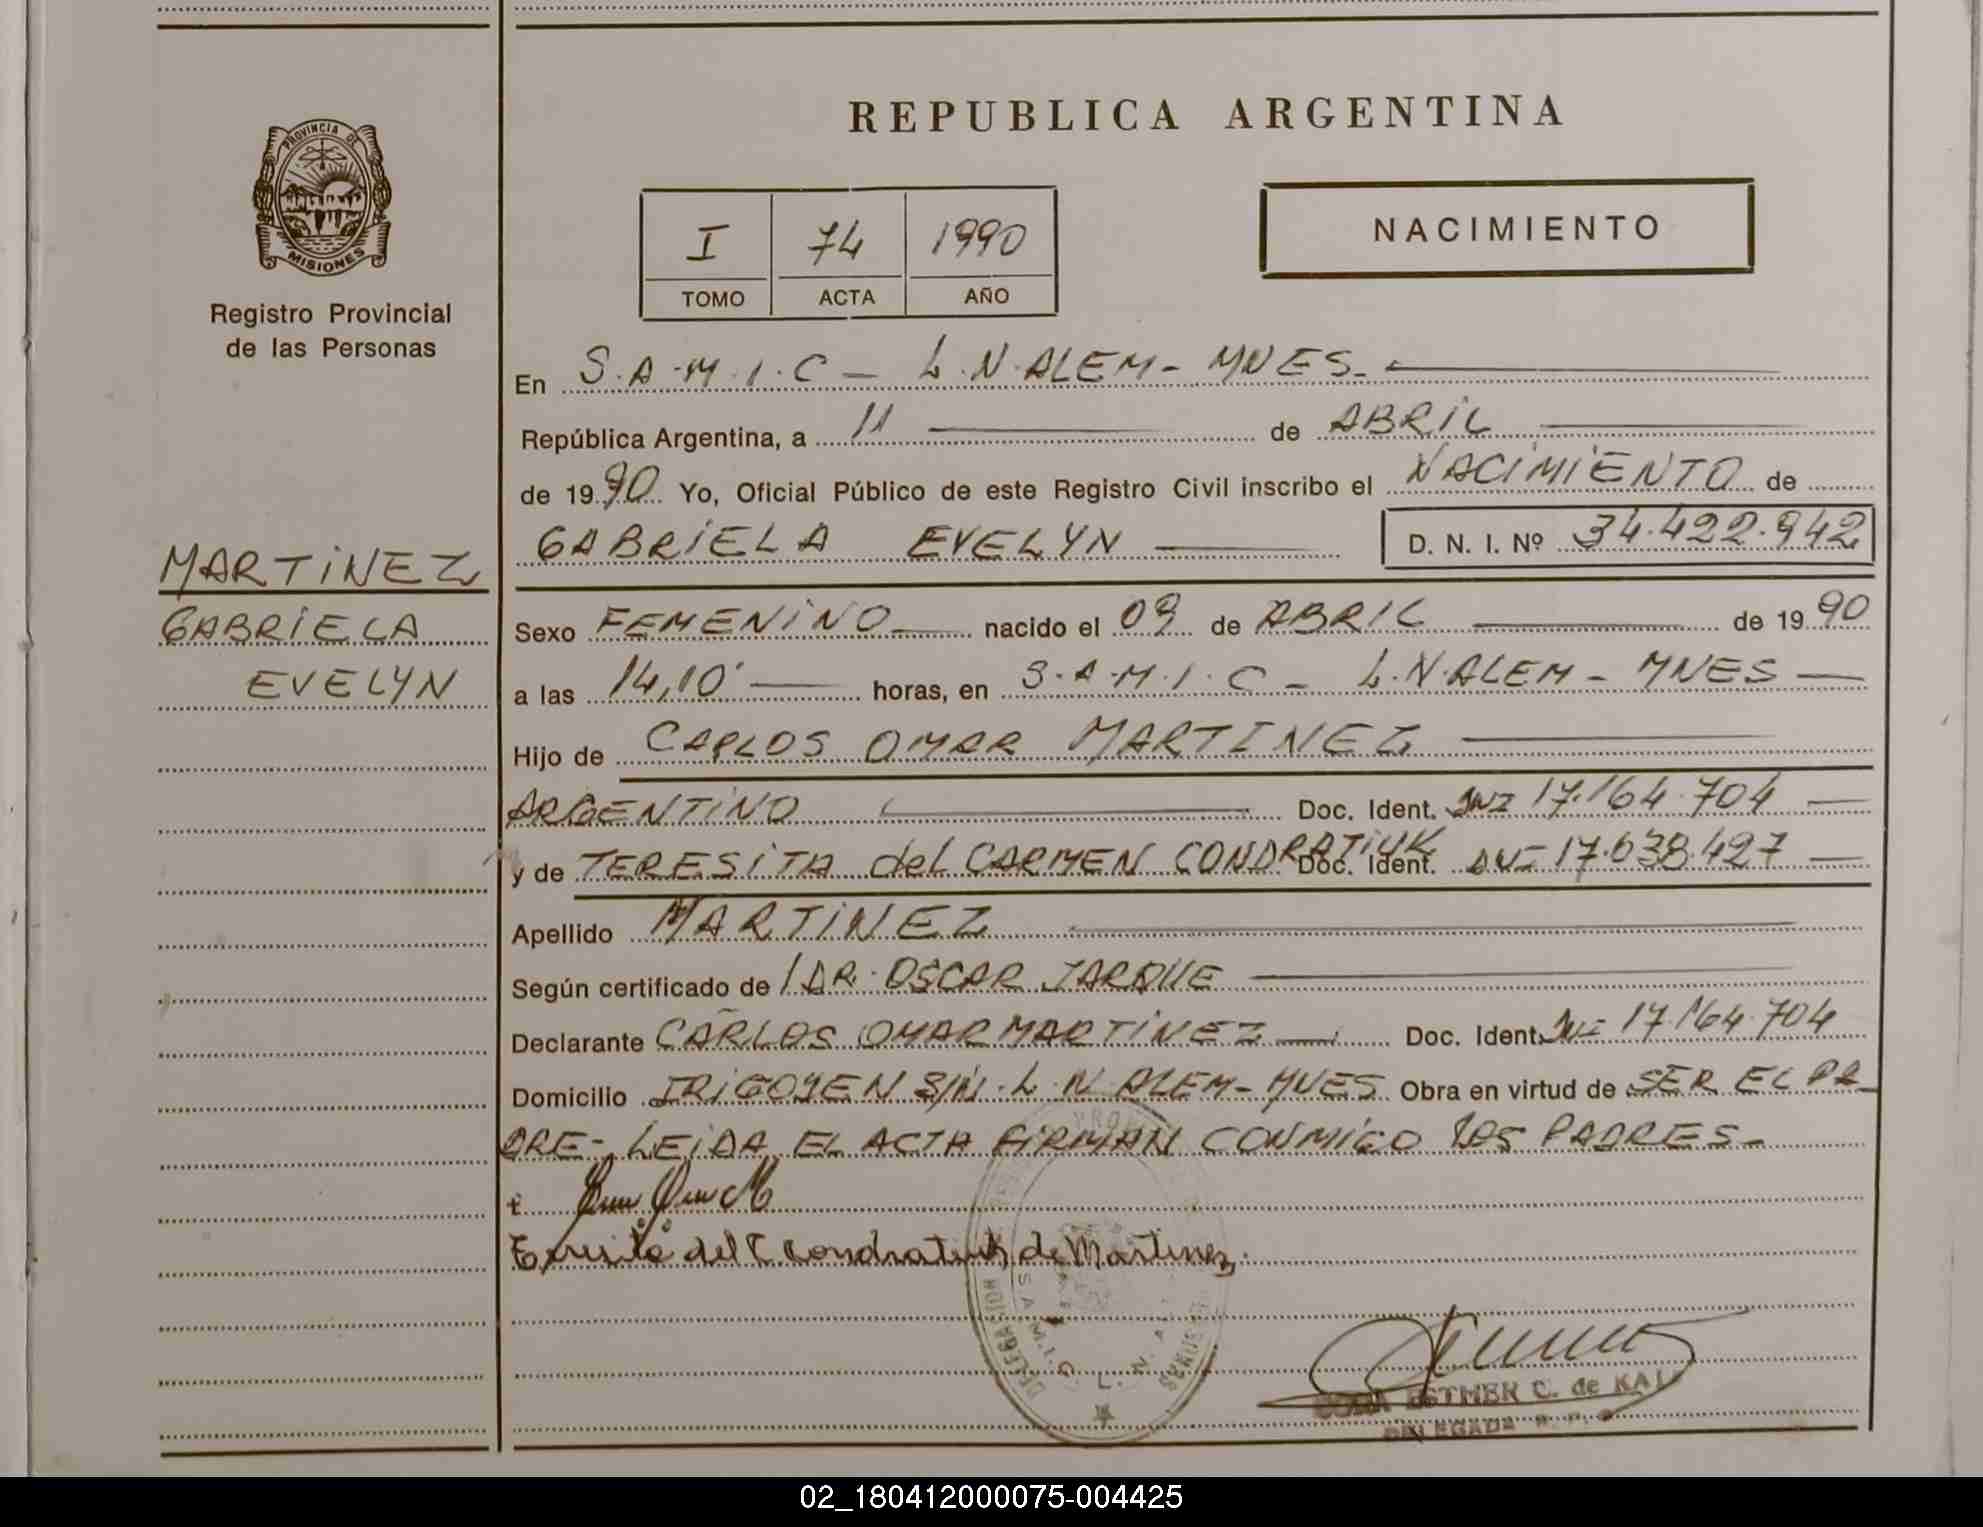 REPUBLICA ARGENTINA
PROVINCIA DE
MISIONES
Registro Provincial
de las Personas
I 74 1990
TOMO ACTA AÑO
NACIMIENTO
En S.A.M.I.C - L.N.ALEM - MNES.
República Argentina, a 11 de ABRIL
de 1990 Yo, Oficial Público de este Registro Civil inscribo el NACIMIENTO de
GABRIELA EVELYN D. N. I. Nº 34.422.942
MARTINEZ
GABRIELA
EVELYN
Sexo FEMENINO nacido el 09 de ABRIL de 1990
a las 14,10' horas, en S.A.M.I.C - L.N.ALEM - MNES
Hijo de CARLOS OMAR MARTINEZ
ARGENTINO Doc. Ident. DNI 17.164.704
y de TERESITA del CARMEN CONDRATIUK Doc. Ident. 17.638.427
Apellido MARTINEZ
Según certificado de DR. OSCAR JARQUE
Declarante CARLOS OMAR MARTINEZ Doc. Ident. 17.164.704
Domicilio IRIGOYEN S/N. L.N ALEM - MNES Obra en virtud de SER EL PA_
DRE - LEIDA EL ACTA FIRMAN CONMIGO LOS PADRES -
Teresita del C. Condratiuk de Martinez.
DELEGACION
S.A.M.I.C. L.N.
ESTHER C. de
DELEGADA
02_180412000075-004425